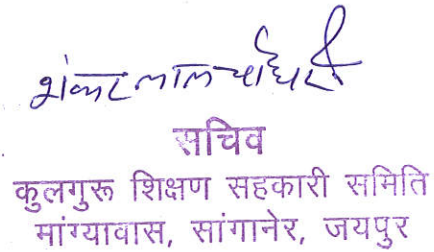 शंकर लाल चौधरी
सचिव
कुलगुरू शिक्षण सहकारी समिति
मांग्यावास, सांगानेर, जयपुर